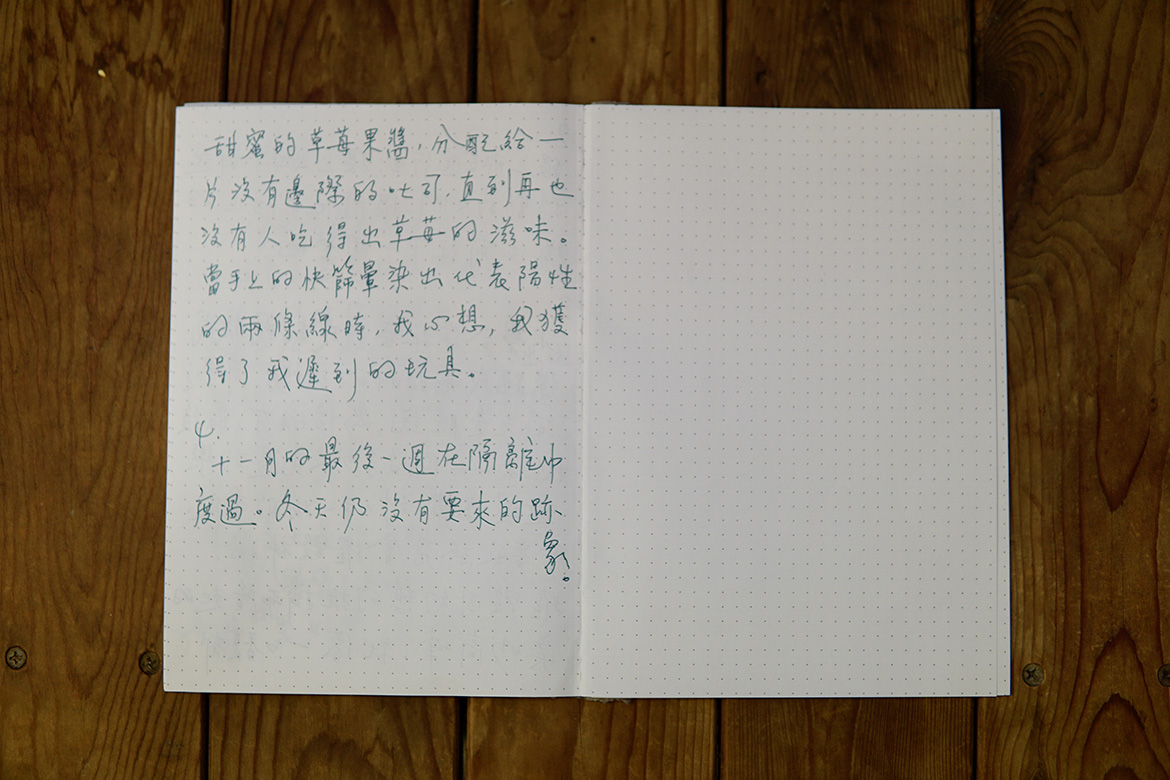 甜蜜的草莓果醬,分配給一
片沒有邊際的吐司,直到再也
沒有人吃得出草莓的滋味。
當手上的快篩暈染出代表陽性
的兩條線時,我心想,我獲
得了我遲到的玩具。
4.
十一月的最後一週在隔離中
度過。冬天仍沒有要來的跡
象。